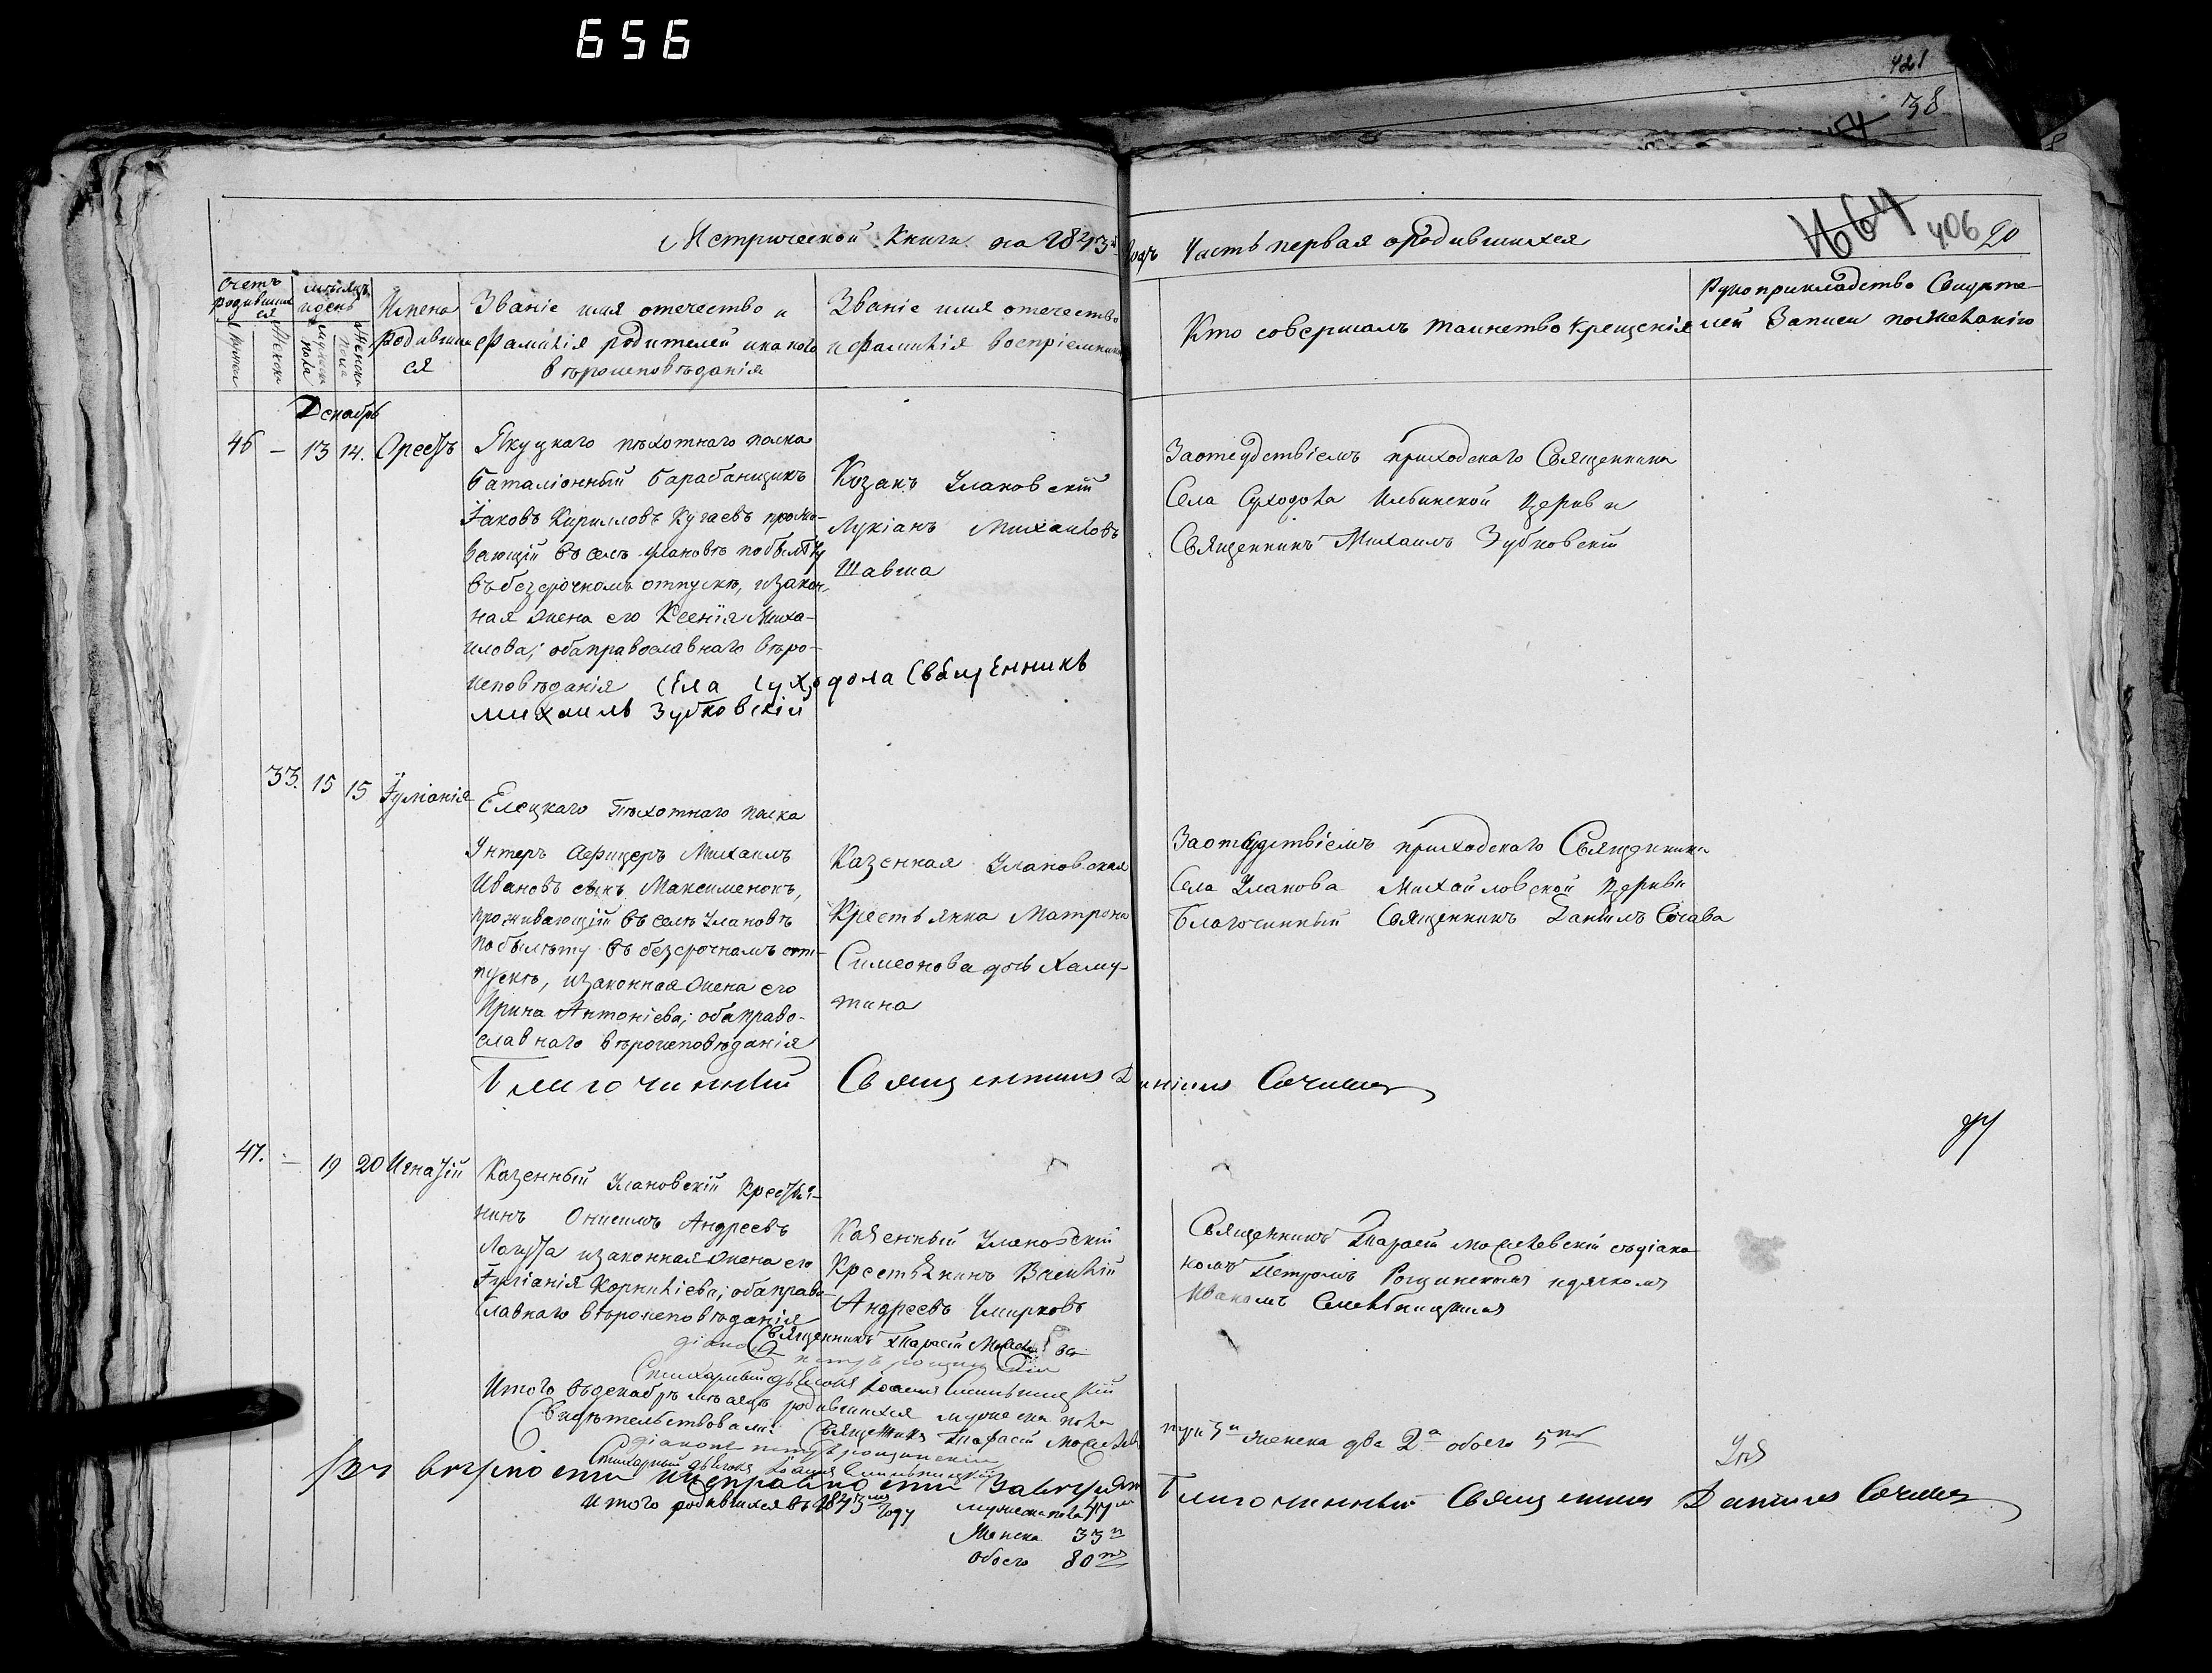 656
421
38
Метрической Книги на 1843й Годъ Часть первая ородившихся
464 406 20
Счетъ родившихся
мѣсяцъ и день
Имена родившихся
Званіе имя отечество и фамилія родителей и какого вѣроисповѣданія
Званіе имя отечество и фамилія воспріемниковъ
Кто совершалъ таинство Крещенія
Рукоприкладство Свидѣтелей Записи по желанію
Декабрь
46 – 13 14. Орестъ
Якуцкаго пѣхотнаго полка
баталіонный барабанщикъ
Іаковъ Кирилловъ Кугаевъ прожи-
вающій въ селѣ Улановѣ по билѣту
въ безсрочномъ отпускѣ, изакон-
ная жена его Ксенія Миха-
илова; оба православнаго вѣро-
исповѣданія Села Суходола Священникъ
михаилъ Зубковскій
Козакъ Улановскій
Лукіанъ Михаиловъ
Шавша
Заотсудствіемъ приходскаго Священника
Села Суходола Ильинской Церкви
Священникъ Михаилъ Зубковскій
33. 15 15 Іуліанія
Елецкаго Пѣхотнаго полка
Унтеръ Афицеръ Михаилъ
Ивановъ сынъ Максименокъ,
проживающій въ селѣ Улановѣ
по билѣту въ безсрочномъ от-
пускѣ, изаконная жена его
Ирина Антоніева; оба право-
славнаго вѣроисповѣданія
Казенная Улановская
Крестьянка Матрона
Симеонова дочь Хаму-
тина
Заотсудствіемъ приходскаго Священника
Села Уланова Михайловской Церкви
Благочинный Священникъ Даніилъ Сочава
Благочинный Священникъ Даніилъ Сочава
47. – 19 20 Игнатій
Казенный Улановскій Крестья-
нинъ Онисимъ Андреевъ
Лагута изаконная жена его
Іуліанія Корниліева; оба право-
славнаго вѣроисповѣданія
Казенный Улановскій
Крестьянинъ Василій
Андреевъ
Священникъ Тарасій съ діако-
номъ Петромъ Рощинскимъ и дячкомъ
Иваномъ
Священникъ Тарасій
діаконъ петръ рощинскій
Итого въ декабрѣ мѣсяцѣ родившихся мужеска пола три 3и женска два 2а обоего 5ть
Свидѣтельствовали: Священникъ Тарасій
діаконъ петръ рощинскій
Благочинный Священникъ Даніилъ Сочава
Итого родившихся въ 1843мъ Году мужеска пола 47м
Женска 33и
обоего 80тъ